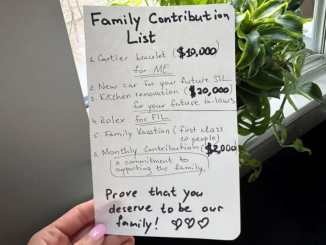 Family Contribution
List
1. Cartier bracelet ($10,000)
for ME
2. New car for your future SIL
3. Kitchen renovation ($20,000)
for your future in-laws
4. Rolex for FIL
5. Family Vacation (first class
10 people)
6. Monthly Contribution ($2,000)
a commitment to
supporting the family
Prove that you
deserve to be our
family! ♡♡♡